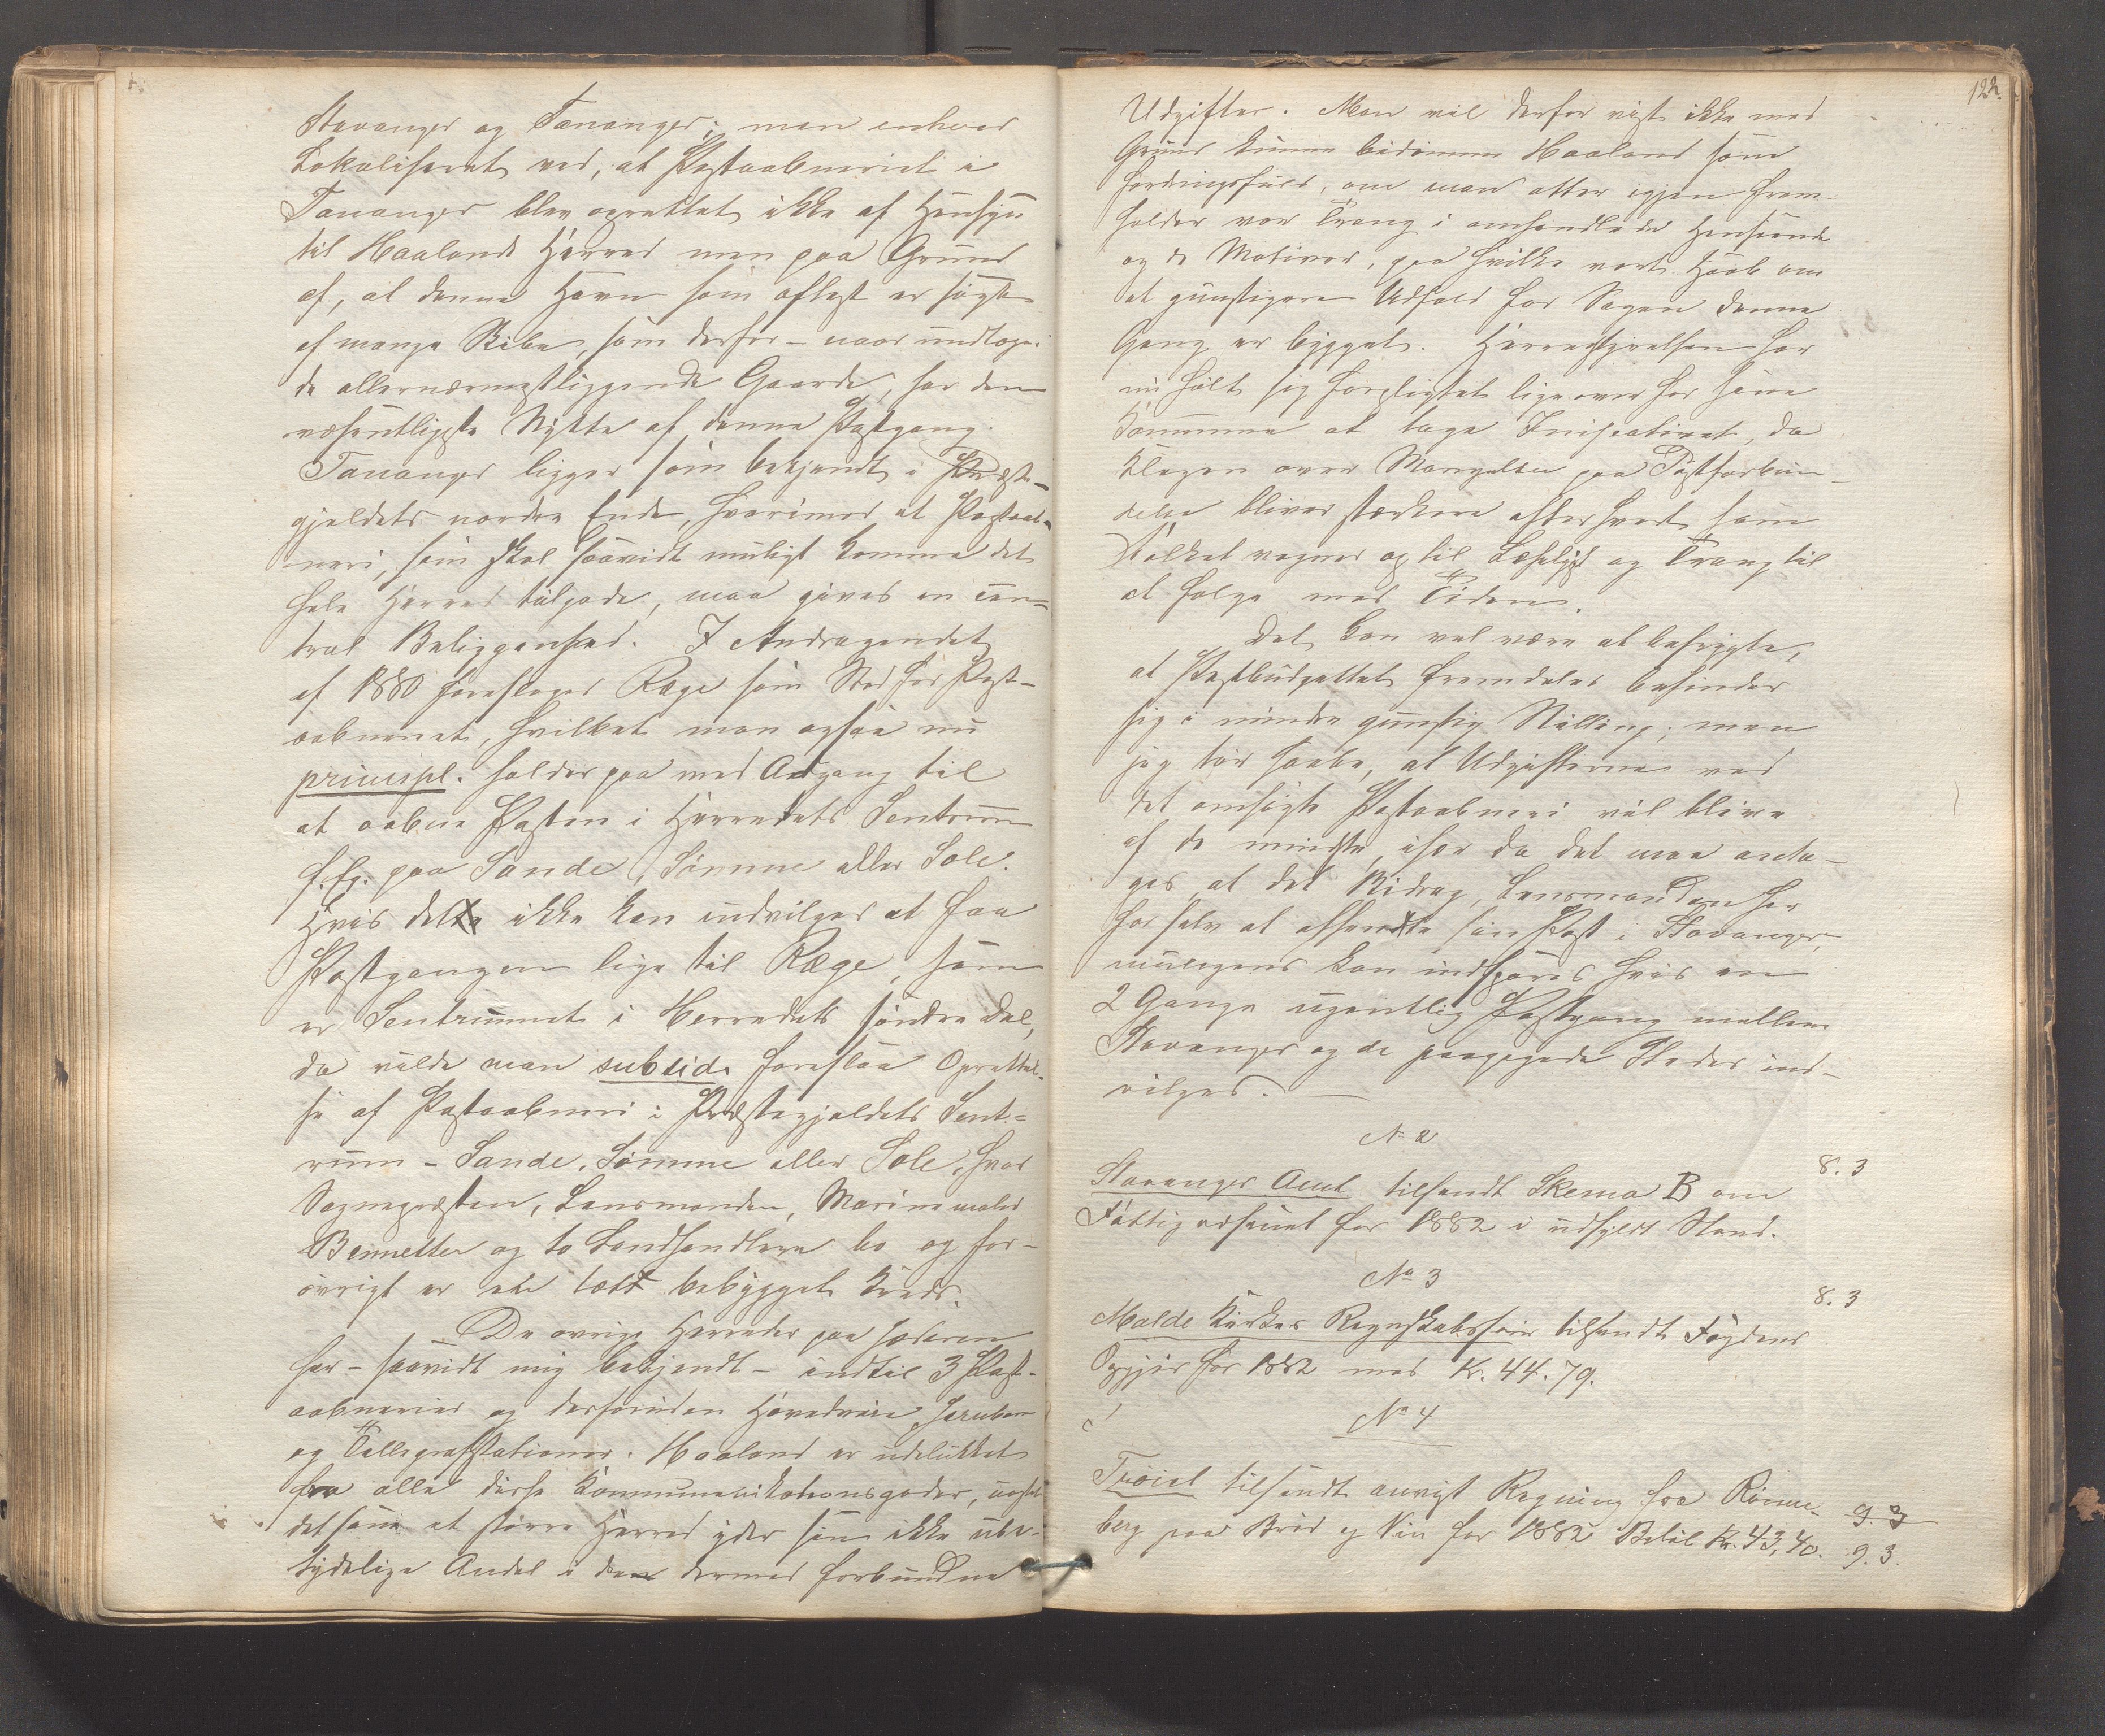 Stavanger og Tananger; men enhver
Lokaliseret ved, at Postaabneriet i
Tananger blev oprettet ikke af Hensyn
til Haalands Herred men paa Grund
af, at denne Havn som oftest er søgt
af mange Skibe, som derfor – naar undtages
de allernærmestliggende Gaarde, har den
væsentligste Nytte af denne Postgang.
Tananger ligger som bekjendt i Præste-
gjeldets nordre Ende, hvorimod et Postaab-
neri, som skal saavidt muligt komme det
hele Herred tilgode, maa gives en cen-
tral Beliggenhed. I Andragendet
af 1880 foresloges Ræge som Sted for Post-
aabneriet, hvilket man ogsaa nu
principl. holder paa med Adgang til
at aabne Posten i Herredets Sentrum
f. Ex. paa Sande, Sømme eller Sole.
Hvis dette ikke kan indvilges at faa
Postgangen lige til Ræge, som
er Sentrumet i Herredets søndre Del,
da vilde man subsid. foreslaa Oprettel-
se af Postaabneri i Præstegjeldets Sent-
rum – Sande, Sømme eller Sole, hvor
Sognepræsten, Lensmanden, Marinemaler
Bennetter og to Landhandlere bo og for-
øvrigt er tæt bebygget Kreds.
De øvrige Herreder paa Jæderen
har – saavidt mig bekjendt – indtil 3 Post-
aabnerier og desforuden Hovedveie Jernbane
og Tellegrafstationer. Haaland er udelukket
fra alle disse Kommunikationsgoder, uagtet
det som et større Herred yder sin ikke ube-
tydelige Andel i den dermed forbundne
122.
Udgifter. Man vil derfor vist ikke med
Grund kunne bedømme Haaland som
fordringsfuld, om man atter igjen frem-
holder vor Trang i omhandlede Henseende
og de Motiver, paa hvilke vort Haab om
et gunstigere Udfald for Sagen denne
Gang er bygget. Herredstyrelsen har
nu holdt sig forpligtet ligeoverfor sine
Kommune at tage Inisiativet, da
Klagen over Mangelen paa Postforbin-
delse bliver stærkere efterhvert som
Folket vagner op til Læselyst og Trang til
at følge med Tiden.
Det kan vel være at befrygte,
at Postbudgettet fremdeles befinder
sig i mindre gunstig Stilling; men
jeg tør haabe, at Udgifterne ved
det omsøgte Postaabneri vil blive
af de mindste, især da det maa anta-
ges, at det Bidrag, Lensmanden har
for selv at afhente sin Post i Stavanger,
muligens kan indspares hvis en
2 Gange ugentlig Postgang mellem
Stavanger og de paagjeldende Steder ind-
vilges.
No 2
Stavanger Amt tilsendt Skema B om
8. 3
Fattigvæsenet for 1882 i udfyldt Stand.
No 3
Malde Kirkes Regnskabsfører tilsendt Fogdens
8. 3
Opgjør for 1882 med Kr. 44.79.
No 4
Trøiel tilsendt anvist Regning fra Rønne-
9. 3
berg paa Brød og Vin for 1882 Beløb Kr. 43,40.
9. 3.